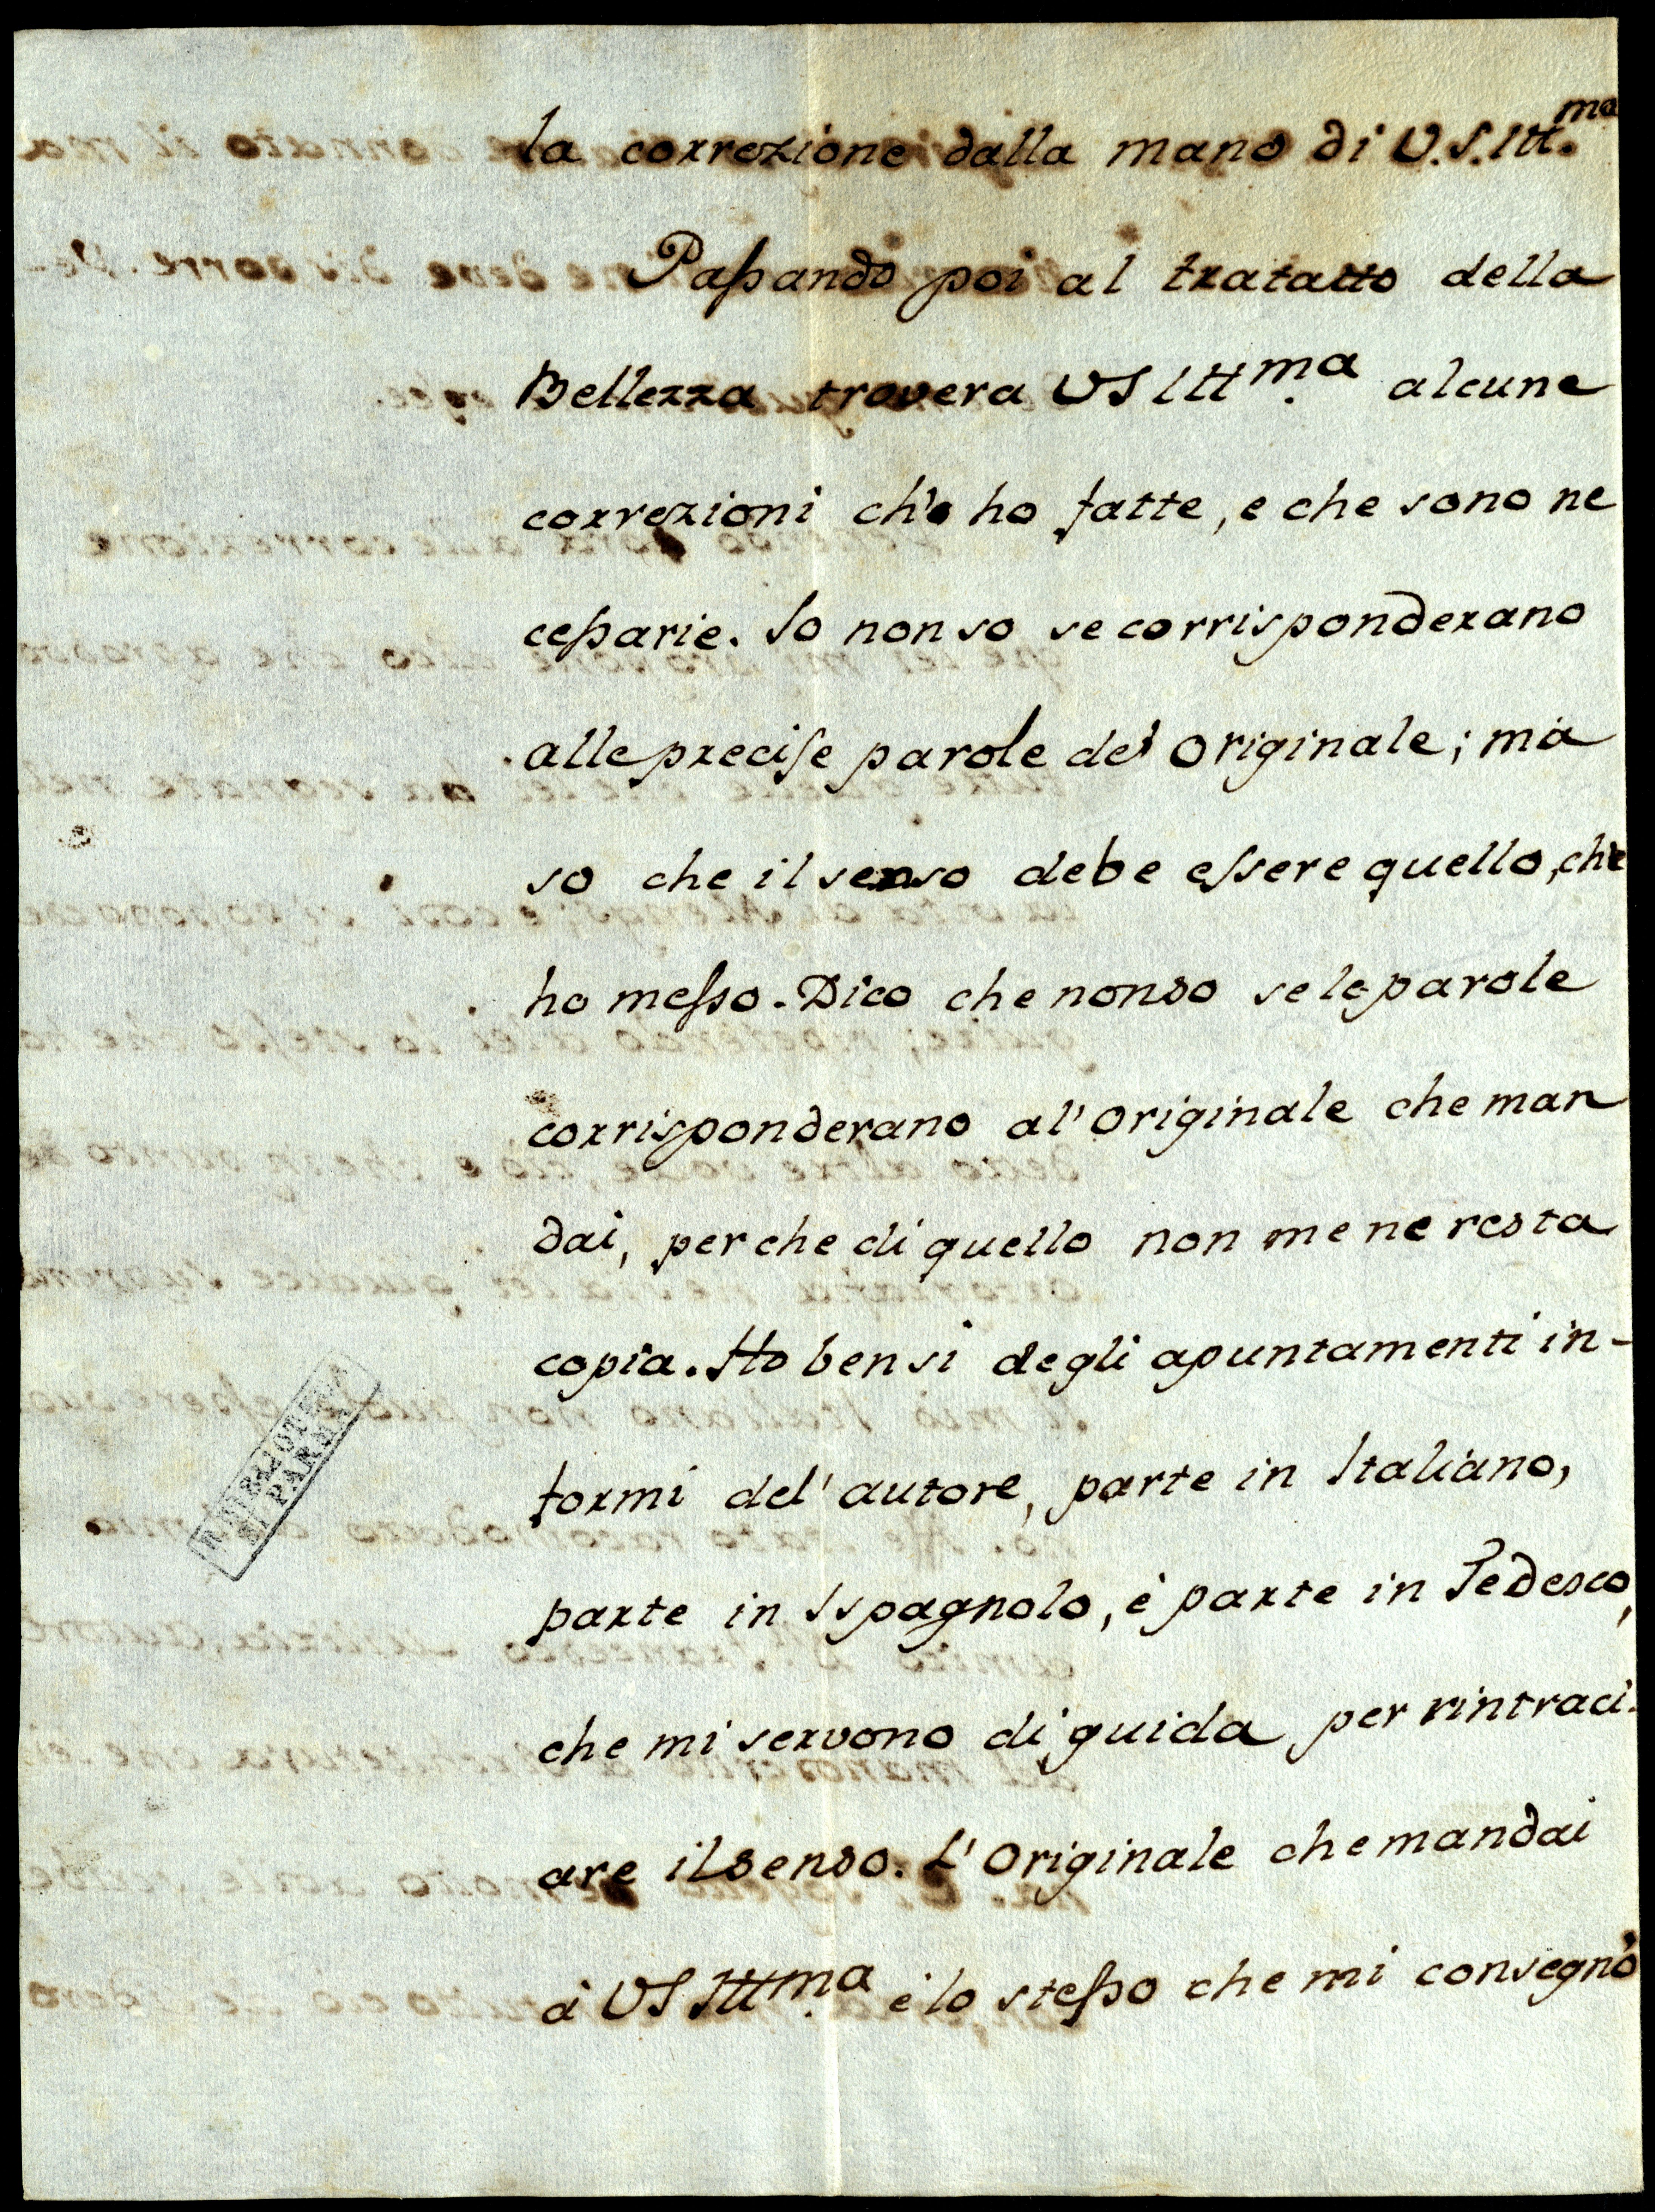 la correzione dalla mano di V.S.Ill.ma
Passando poi al tratatto della
Bellezza trovera VS Illma. alcune
correzioni ch'o ho fatte, e che sono ne
cessarie. Io non so se corrisponderano
alle precise parole del originale; ma
so che il senso debe essere quello, che
ho messo. Dico che non so se le parole
corrisponderano al'originale che man
dai, perche di quello non me ne resta
copia. Ho bensi degli apuntamenti in-
formi del'autore, parte in Italiano,
parte in Ispagnolo, è parte in Tedesco,
che mi servono di guida per rintraci-
are il senso. L'Originale che mandai
à VS Illma. è lo stesso che mi consegnò
R. BIBLIOTECA
DI PARMA